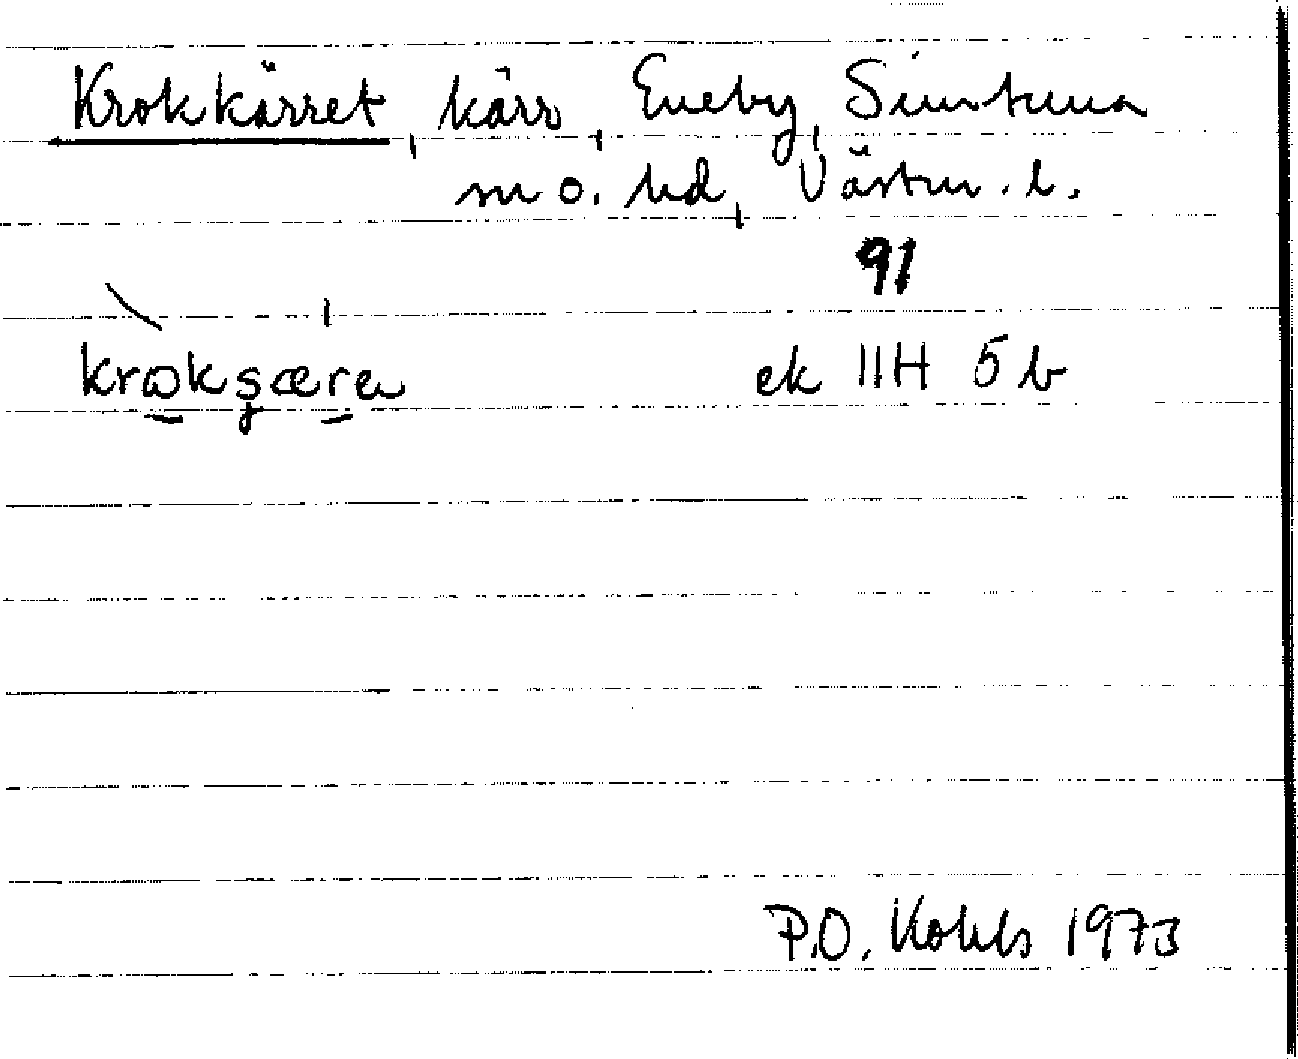 Krokkärret, kärr, Eneby, Simtuna
sn o. hd, Västm. l.
91
krokʂæra ek 11H 5b
P.O. Kohls 1973